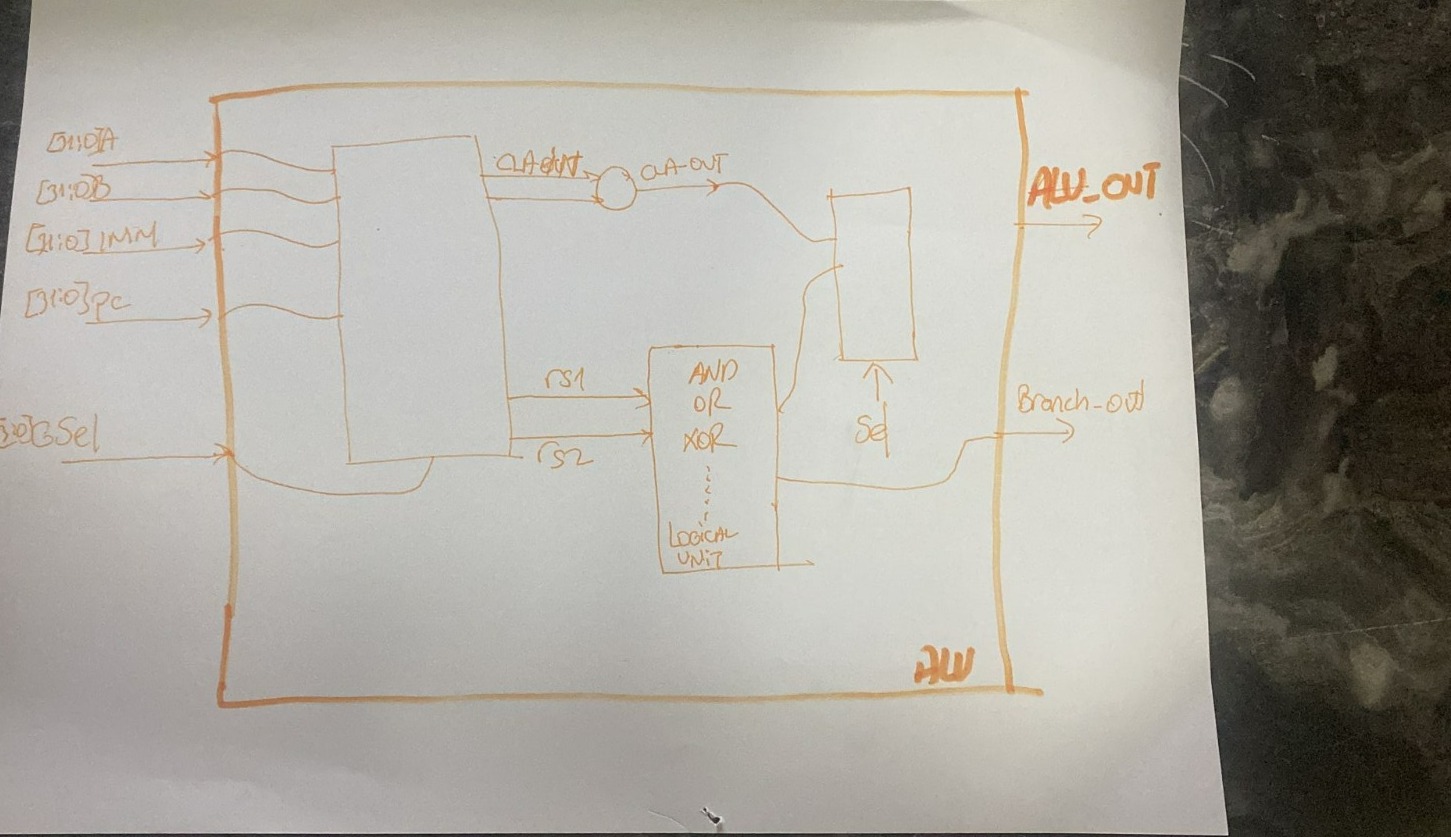 [31:0]A
[31:0]B
[31:0] IMM
[31:0]PC
Sel
CLA-OUT
ALU_OUT
rs1
rs2
AND
OR
XOR
LOGICAL
UNIT
Sel
Branch-out
ALU